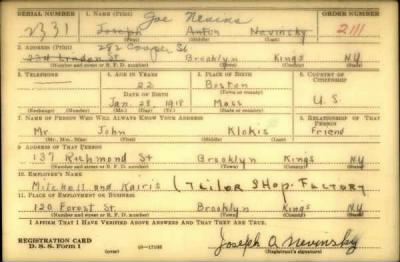 SERIAL NUMBER 1. NAME (Print) Joe Nevins ORDER NUMBER
2331 Joseph Anton Nevinsky 2111
(First) (Middle) (Last)
2. ADDRESS (Print) 282 Cooper St
234 Linden St Brooklyn Kings NY
(Number and street or R. F. D. number) (Town) (County) (State)
3. TELEPHONE 4. AGE IN YEARS 5. PLACE OF BIRTH 6. COUNTRY OF CITIZENSHIP
22 Boston
DATE OF BIRTH (Town or county)
Jan 28 1918 Mass U.S.
(Exchange) (Number) (Mo.) (Day) (Yr.) (State or country)
7. NAME OF PERSON WHO WILL ALWAYS KNOW YOUR ADDRESS 8. RELATIONSHIP OF THAT PERSON
Mr. John Klokis Friend
(Mr., Mrs., Miss) (First) (Middle) (Last)
9. ADDRESS OF THAT PERSON
137 Richmond St Brooklyn Kings NY
(Number and street or R. F. D. number) (Town) (County) (State)
10. EMPLOYER'S NAME
Mitchell and Kairis (Tailor SHOP. FACTORY
11. PLACE OF EMPLOYMENT OR BUSINESS
120 Forest St. Brooklyn Kings NY
(Number and street or R. F. D. number) (Town) (County) (State)
I AFFIRM THAT I HAVE VERIFIED ABOVE ANSWERS AND THAT THEY ARE TRUE.
REGISTRATION CARD
D. S. S. Form 1 (over) 16—17105 Joseph A Nevinsky
(Registrant's signature)